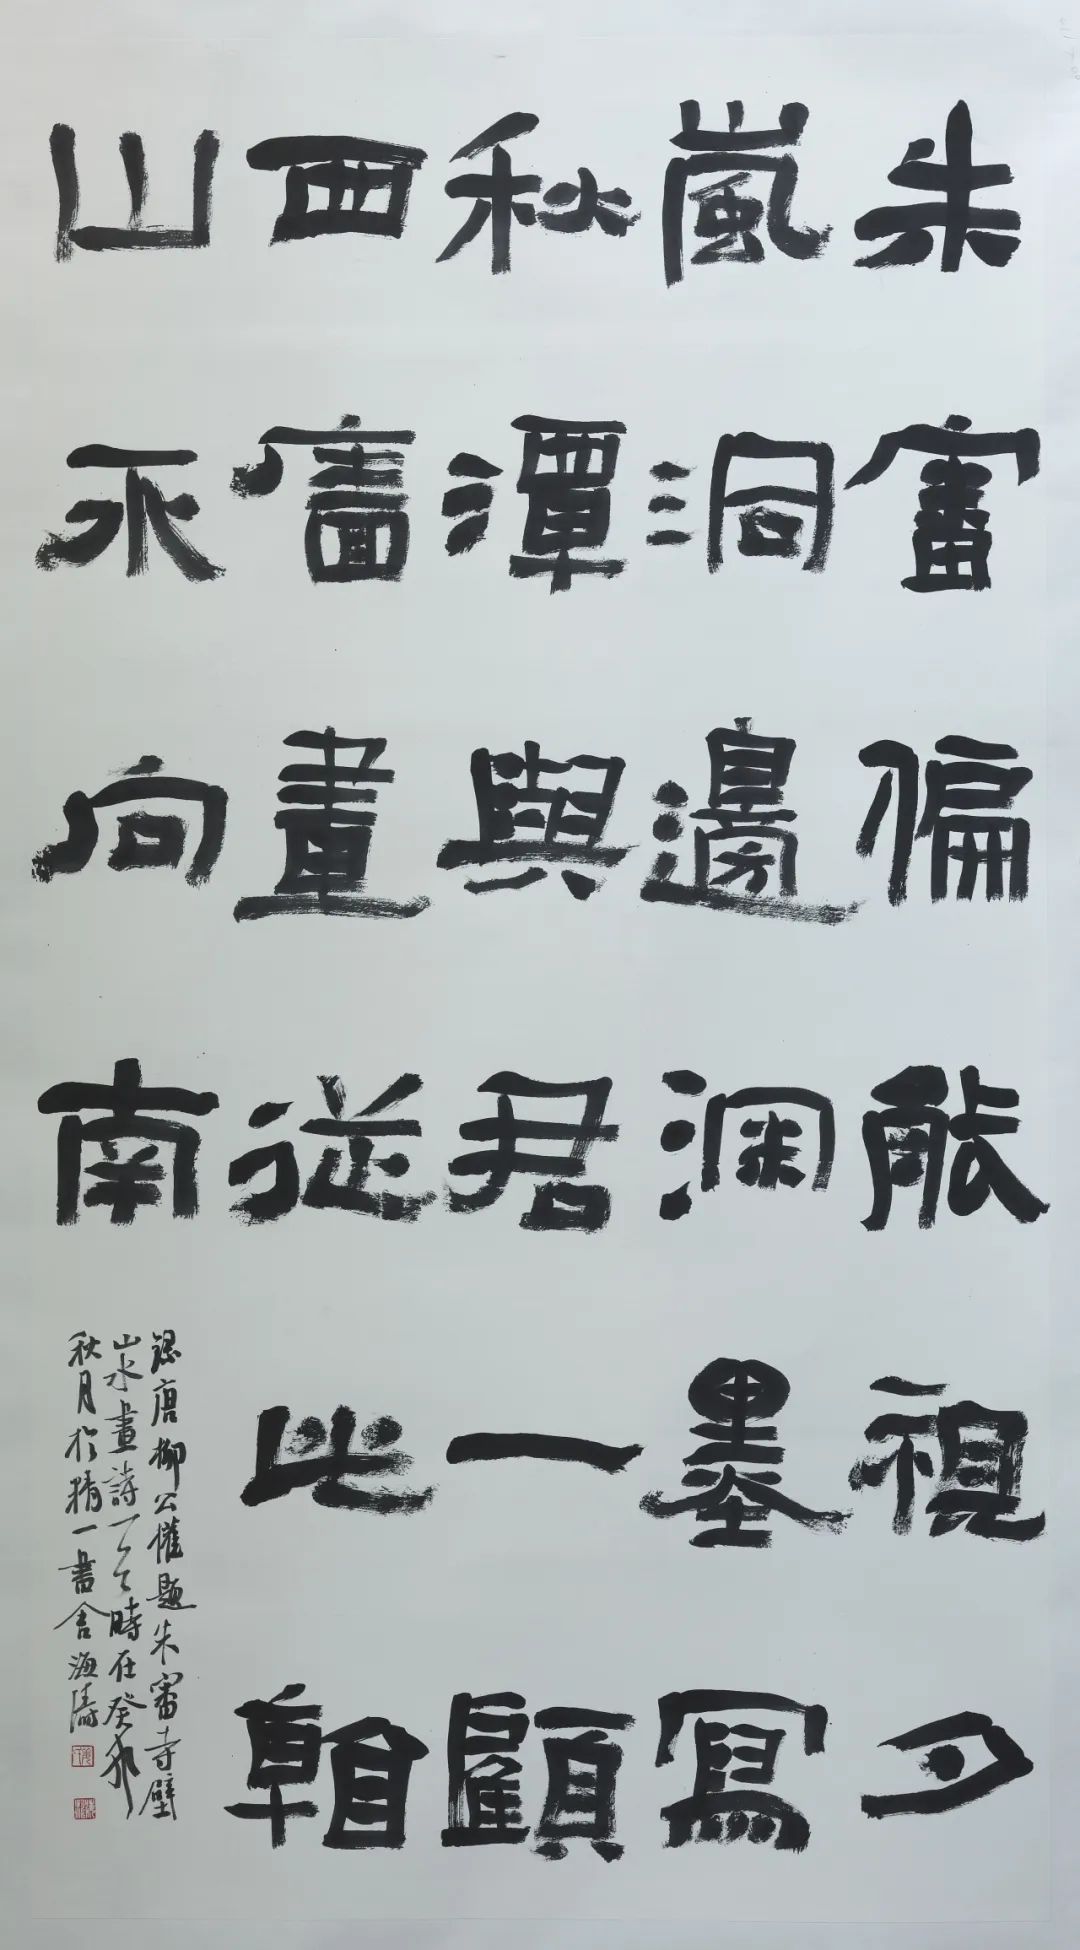 朱審偏能視夕
嵐洞邊深墨寫
秋潭與君一顧
西廧畫從此看
山不向南
錄唐柳公權題朱審寺壁
山水畫詩一首時在癸卯
秋月於精一書舍海濤